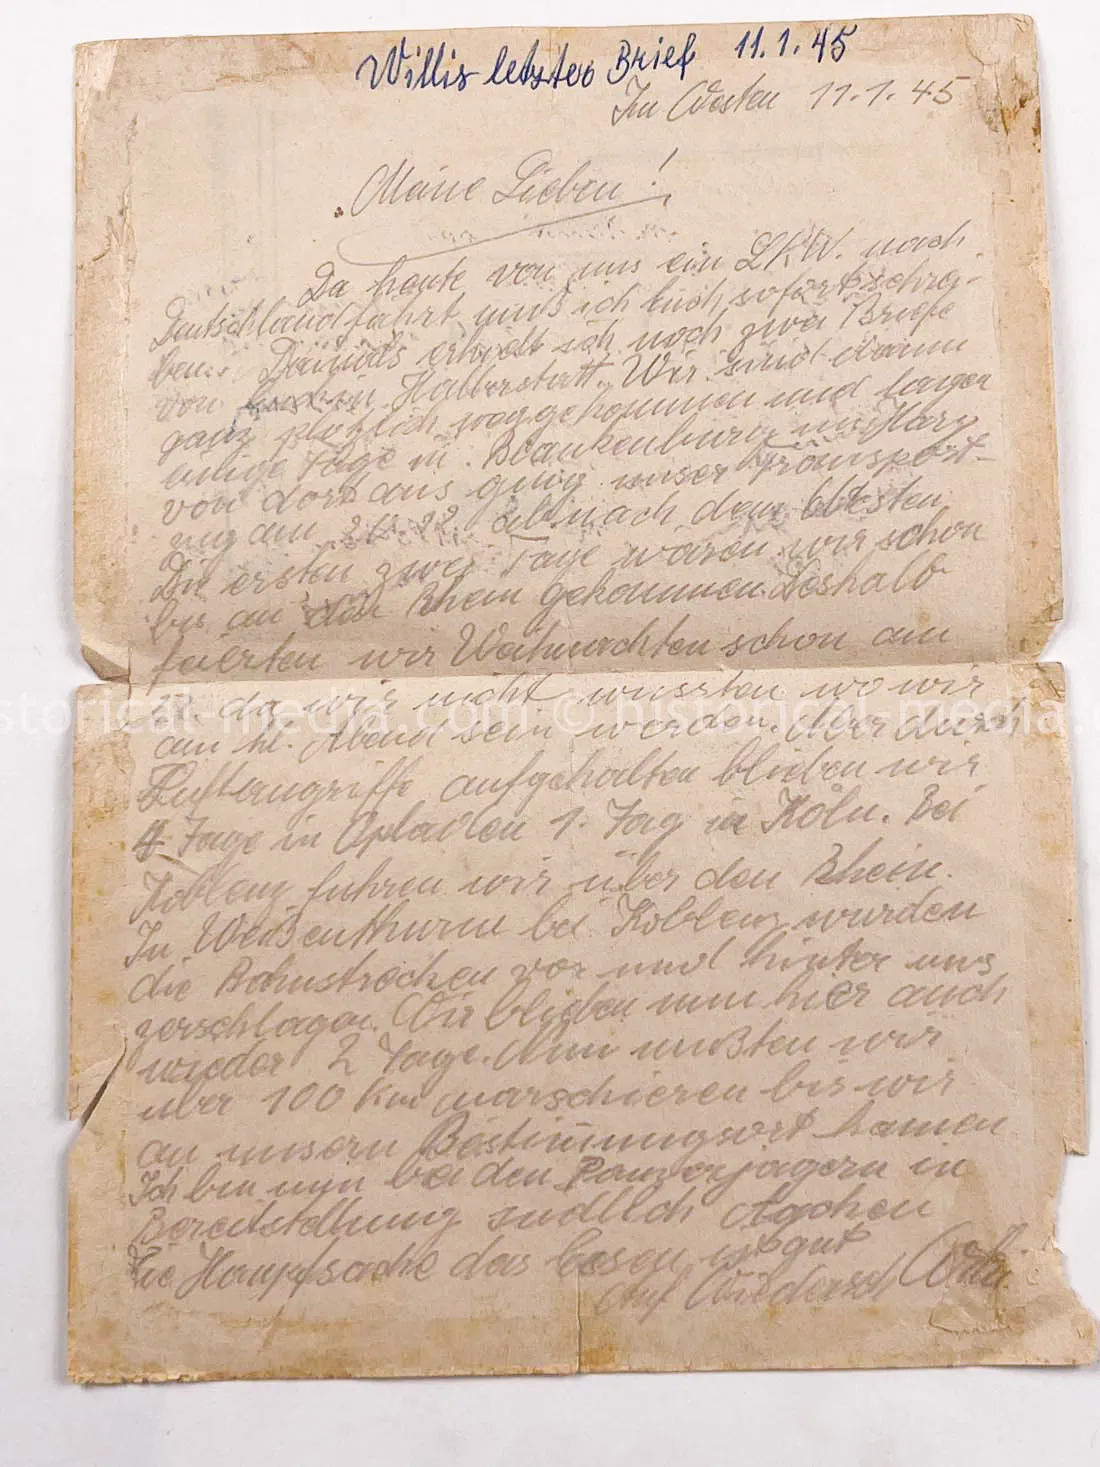 Willis letzter Brief 11.1.45
Im Westen 11.1.45
Meine Lieben!
Da heute von uns ein LKW. nach
Deutschland fährt muß ich Euch sofort schrei-
ben. Damals erhielt ich noch zwei Briefe
von Euch in Halberstatt. Wir sind dann
ganz plötzlich weggekommen und lagen
einige Tage in Blankenburg im Harz
von dort aus ging unser Transport-
zug am ab nach dem Westen
Die ersten zwei Tage waren wir schon
bis an den Rhein gekommen. Deshalb
feierten wir Weihnachten schon am
da wir nicht wussten wo wir
am hl. Abend sein werden. Aber durch
Luftangriffe aufgehalten blieben wir
4 Tage in Opladen 1. Tag in Köln. Bei
Koblenz fuhren wir über den Rhein.
In Weißenthurm bei Koblenz wurden
die Bahnstrecken vor und hinter uns
zerschlagen. Wir blieben nun hier auch
wieder 2 Tage. Nun mußten wir
über 100 Km marschieren bis wir
an unsern Bestimmungsort kamen
Ich bin nun bei den Panzerjägern in
Bereitstellung südlich Aachen
Die Hauptsache das Essen ist gut
Auf Wiederseh Willi.
historical-media.com © historical-media.